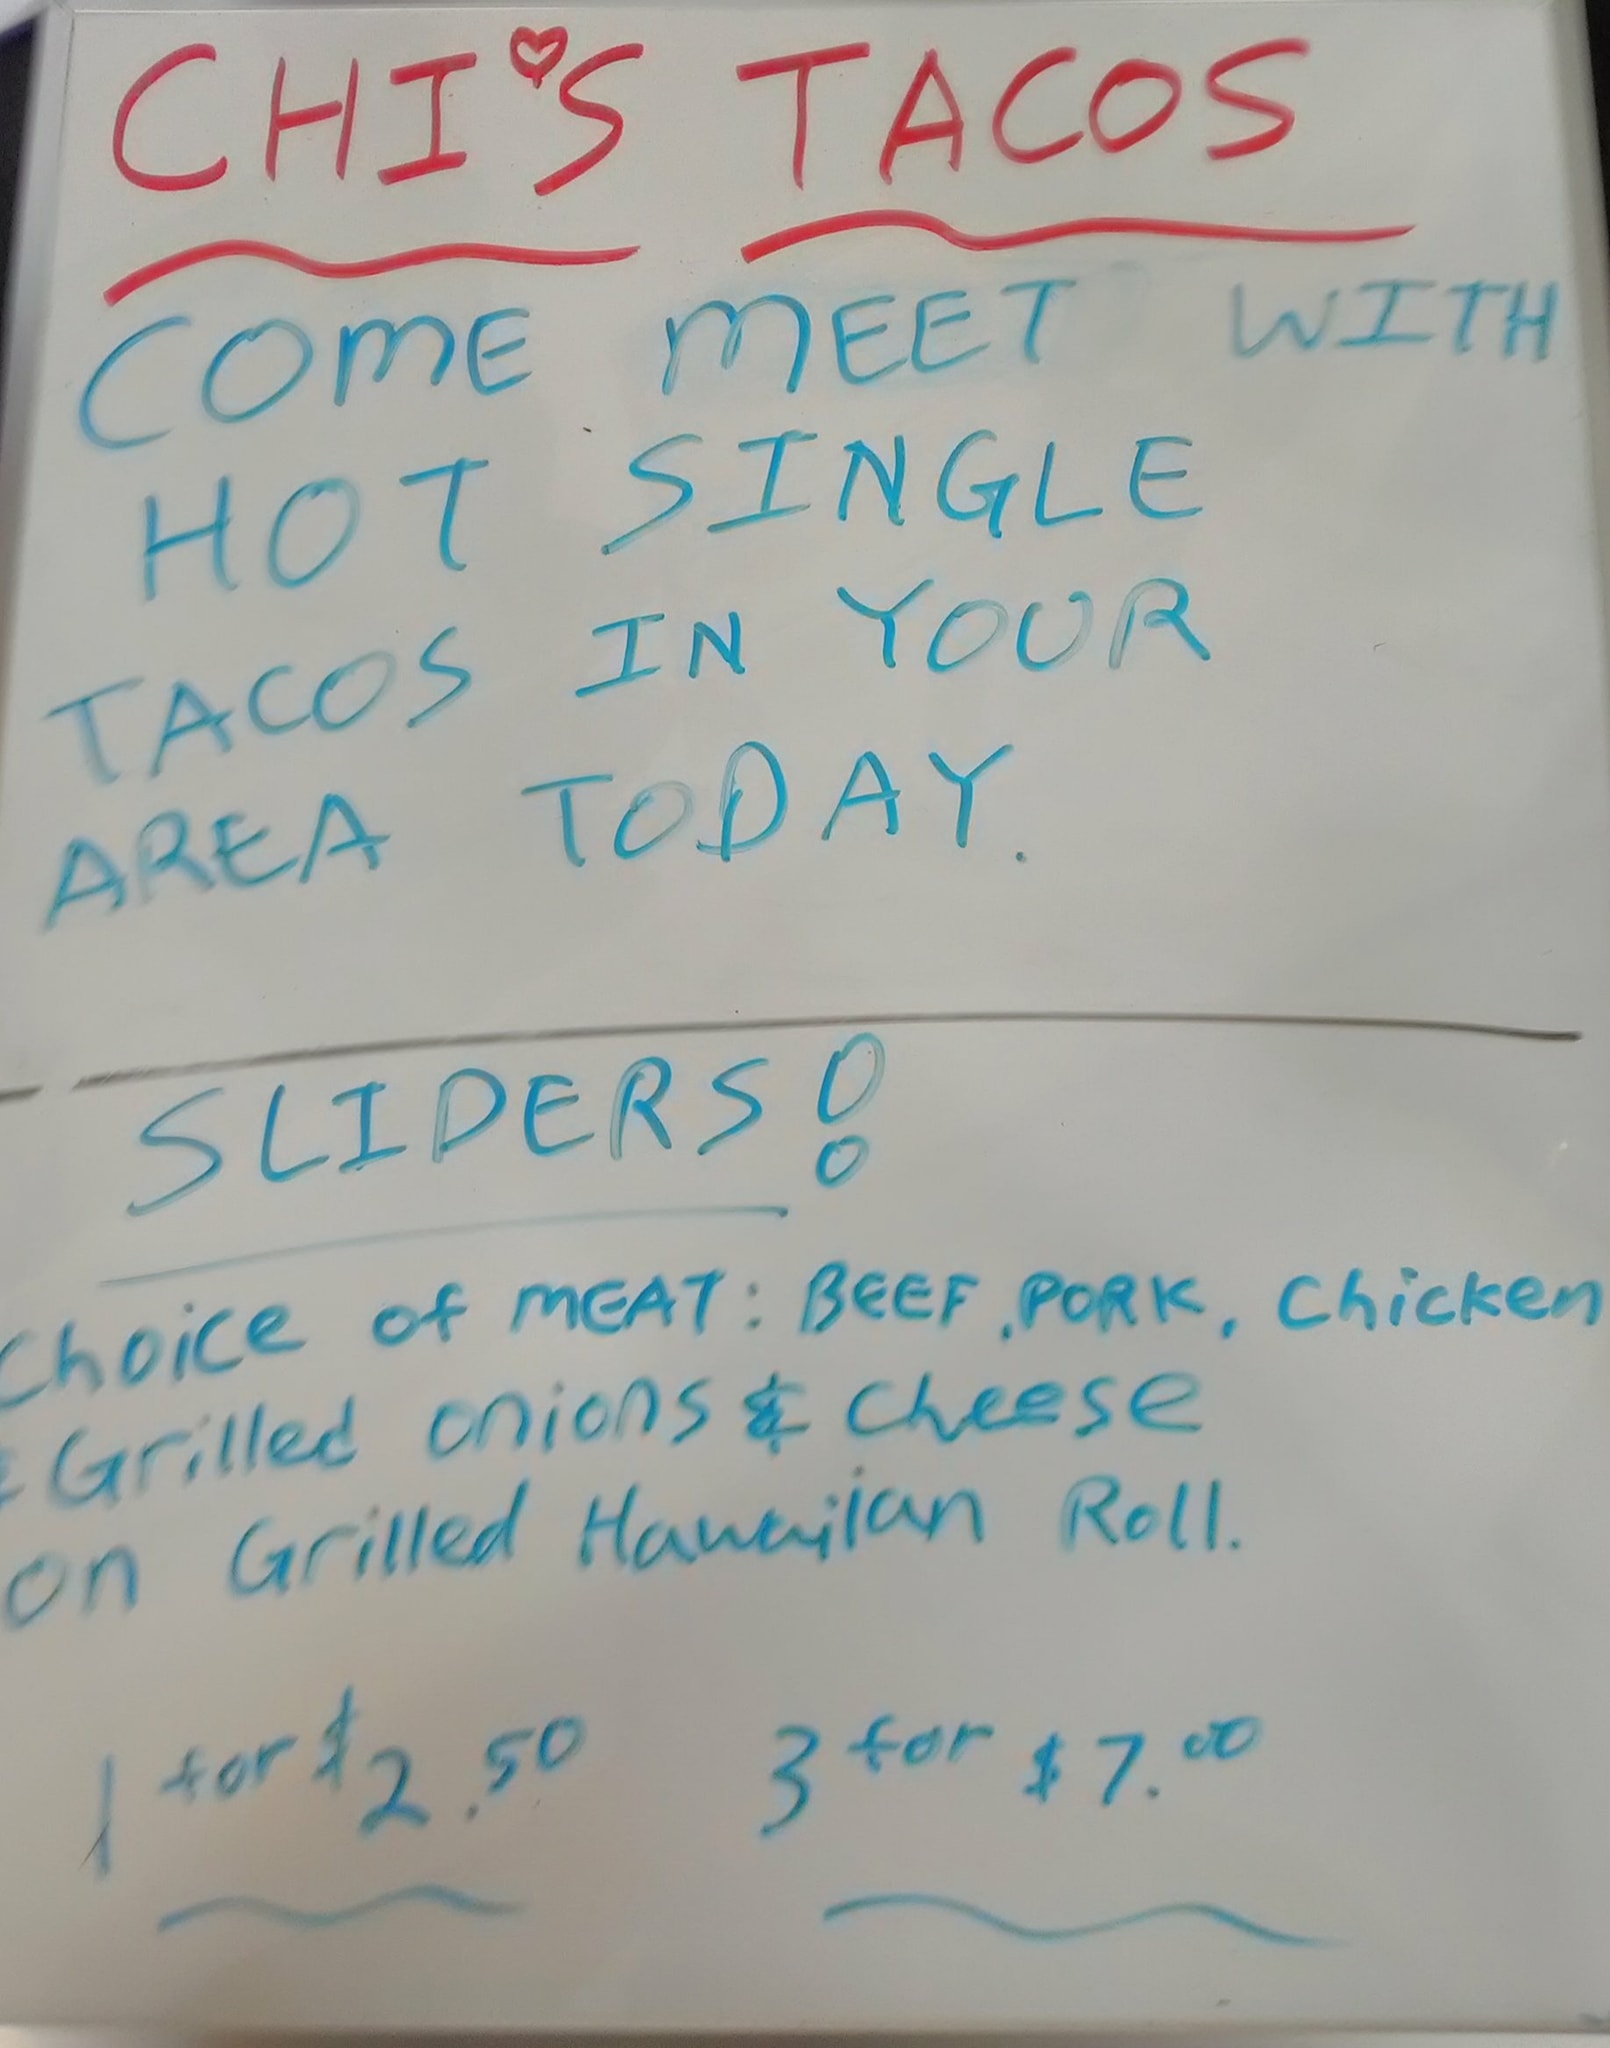 CHI'S TACOS
COME MEET WITH
HOT SINGLE
TACOS IN YOUR
AREA TODAY.
SLIDERS!
Choice of MEAT: BEEF, PORK, Chicken
& Grilled onions & Cheese
on Grilled Hawaiian Roll.
1 for $2.50 3 for $7.00